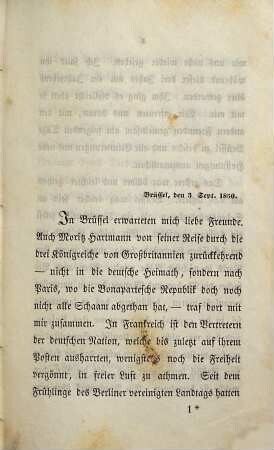 Brüssel, den 3 Sept. 1850.
In Brüssel erwarteten mich liebe Freunde.
Auch Moritz Hartmann von seiner Reise durch die
drei Königreiche von Großbritannien zurückkehrend
— nicht in die deutsche Heimath, sondern nach
Paris, wo die Bonapartesche Republik doch noch
nicht alle Schaam abgethan hat, — traf dort mit
mir zusammen. In Frankreich ist den Vertretern
der deutschen Nation, welche bis zuletzt auf ihrem
Posten ausharrten, wenigstens noch die Freiheit
vergönnt, in freier Luft zu athmen. Seit dem
Frühlinge des Berliner vereinigten Landtags hatten
1 *